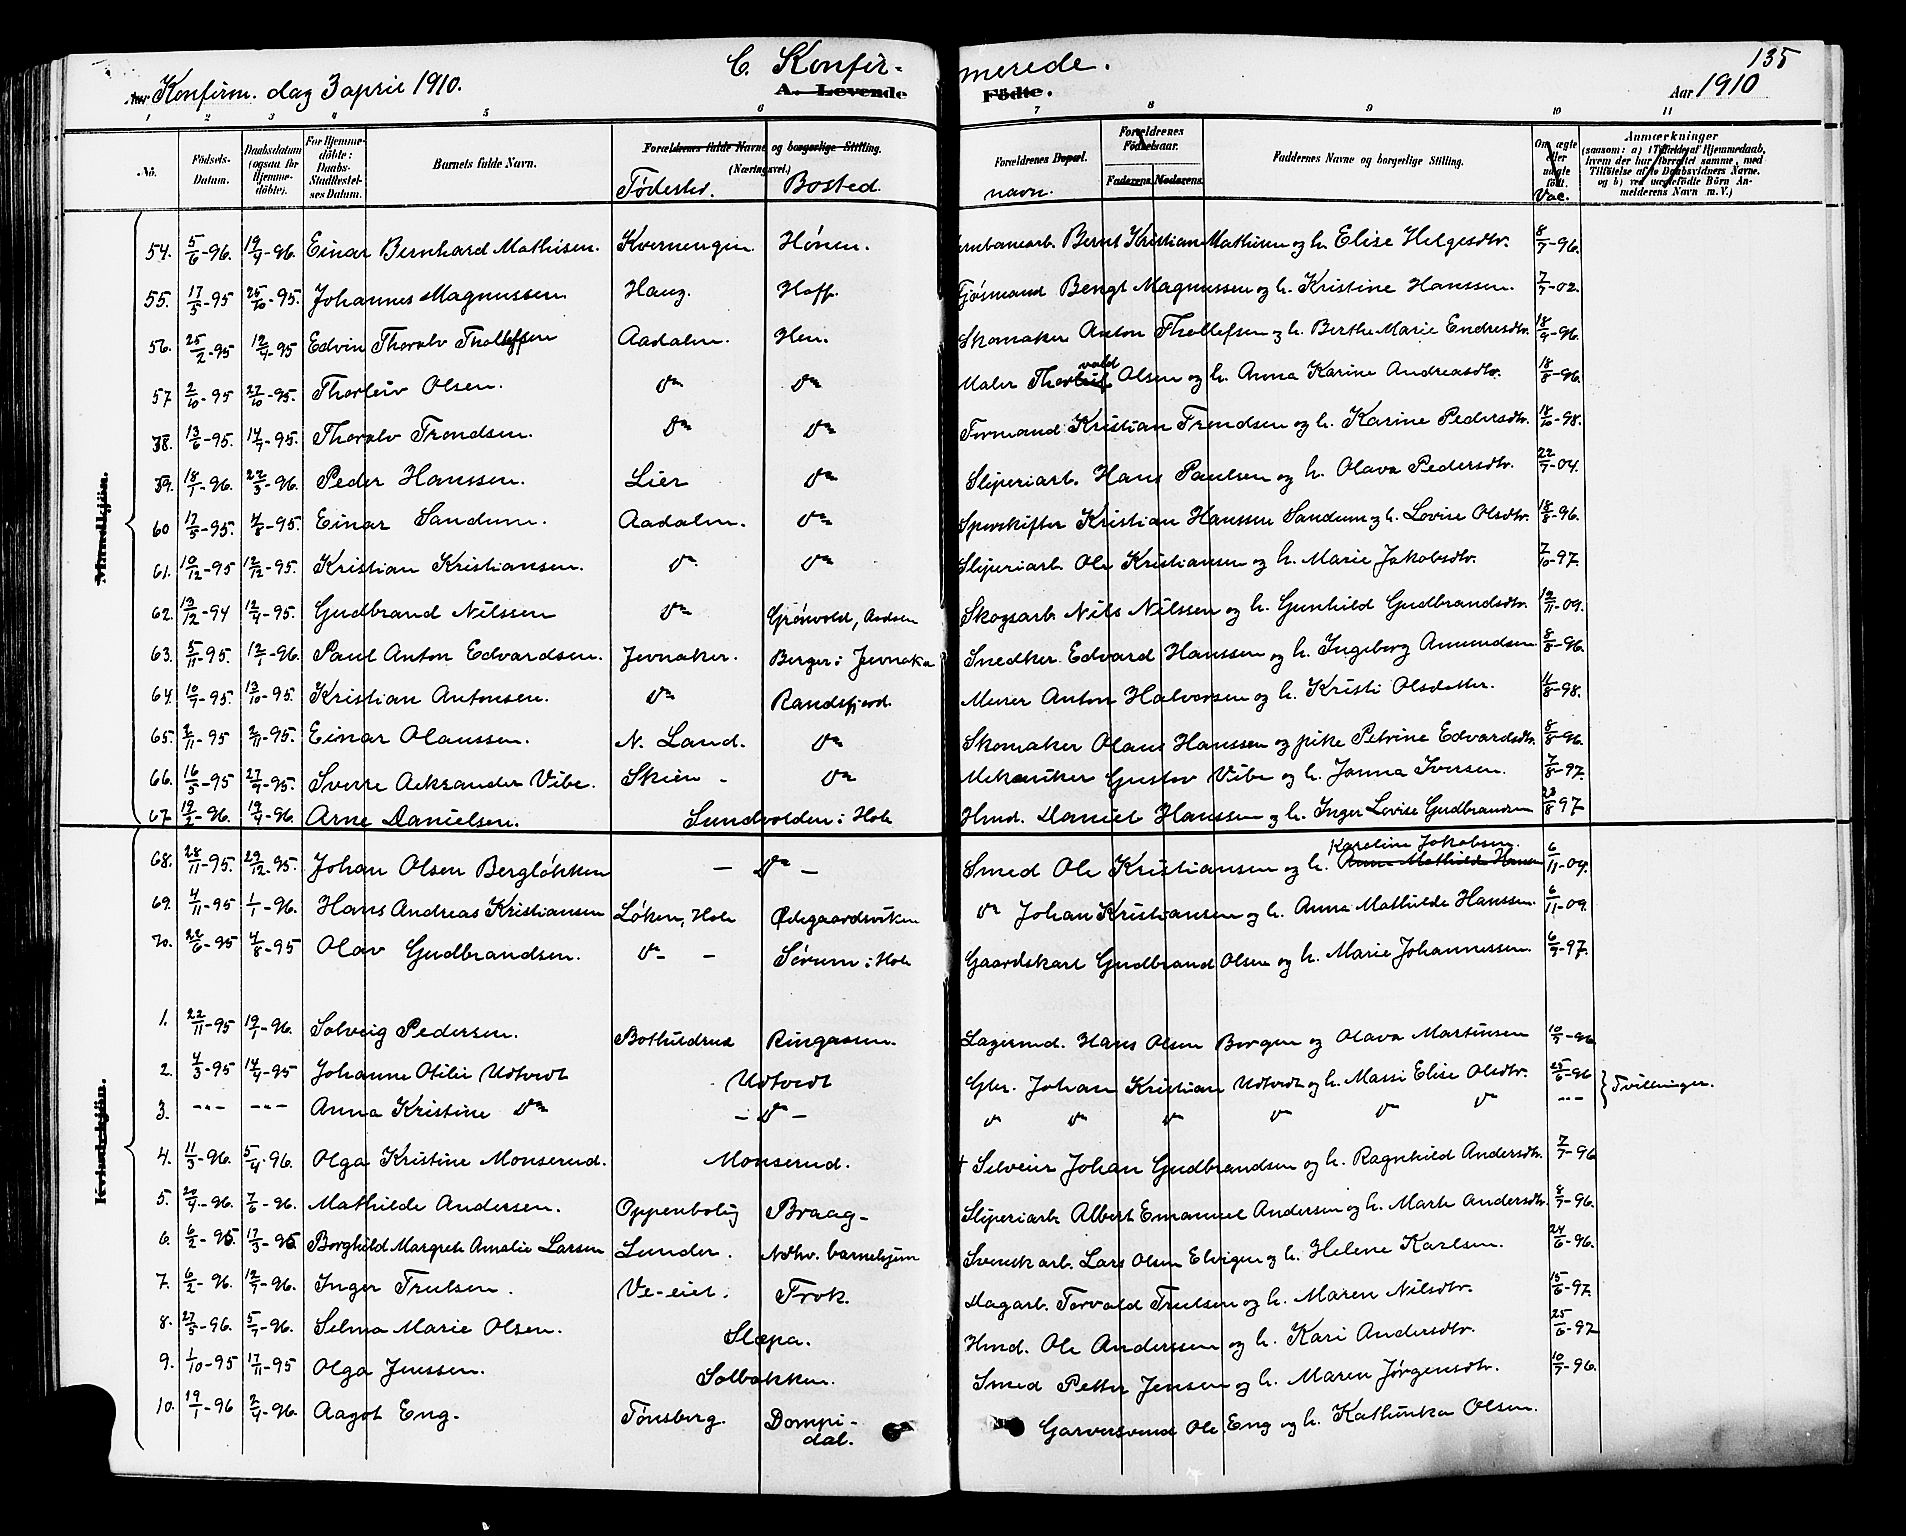 135
C. Konfir- merede.
Konfirm. dag 3 april 1910.
A. Levende Födte.
Aar 1910
1 2 3 4 5 6 7 8 9 10 11
No. Födsels-Datum. Daabsdatum (ogsaa for Hjemmedöbte). For Hjemmedöbte: Daabs-Stadfæstelses Datum. Barnets fulde Navn. Forældrenes fulde Navne og borgerlige Stilling. (Næringsvei.) Fødested. Bosted. Forældrenes Bopæl. navn. Forældrenes Födselsaar. Faderens. Moderens. Faddernes Navne og borgerlige Stilling. Om ægte eller uægte født. Vac. Anmærkninger (saasom: a) i Tilfælde af Hjemmedaab, hvem der har forrettet samme, med Tilföielse af to Daabsvidners Navne, og b) ved uægtefödte Börn Anmelderens Navn m. V.)
Mandkjön.
54. 5/6-96. 19/7-96. Einar Bernhard Mathisen. Kvernengin Hønen. Bernt Kristian Mathisen og h. Elise Helgesdtr. 8/7-96.
55. 17/5-95 25/10-95. Johannes Magnussen. Haug. Hoff. Fjøsmand Bengt Magnussen og h. Kristine Hanssen. 7/7-02.
56. 25/2-95 12/4-95 Edvin Thoralv Thollefsen Aadalen. Hen. Skomaker Anton Thollefsen og h. Berthe Marie Endresdtr. 18/9-96.
57 2/10-95 27/10-95. Thorleiv Olsen. do do Maler Thorvald Olsen og h. Anna Karine Andreasdtr. 18/8-96.
58. 13/6-95. 14/7-95. Thoralv Trondsen. do do Formand Kristian Trondsen og h. Karine Pedersdtr. 18/6-98.
59. 18/1-96. 22/3-96. Peder Hanssen. Lier do Sliperiarb. Hans Paulsen og h. Olava Pedersdtr. 22/7-04.
60 17/5-95. 4/8-95. Einar Sandum. Aadalen. do Sporskifter Kristian Hanssen Sandum og h. Lovise Olsdtr. 18/8-96.
61. 10/12-95 12/12-95. Kristian Kristiansen. do do Sliperiarb. Ole Kristiansen og h. Marie Jakobsdtr. 7/10-97.
62. 13/12-94 12/4-95. Gudbrand Nilssen do Grønvold, Aadalen Skogsarb. Nils Nilssen og h. Gunhild Gudbrandsdtr. 12/11-09.
63. 5/11-95. 12/1-96. Paul Anton Edvardsen. Jevnaker. Berger i Jevnaker Snedker Edvard Hanssen og h. Ingeborg Amundsen 8/8-96.
64. 10/9-95. 13/10-95. Kristian Antonsen. do Randsfjord. Murer Anton Halvorsen og h. Kristi Olsdatter. 11/8-98.
65. 2/11-95 2/11-95. Einar Olaussen. N. Land. do Skomaker Olaus Hanssen og pike Petrine Edvardsdtr. 8/8-96.
66. 16/5-95 27/7-95. Sverre Aleksander Vibe. Skien - do Mekaniker Gustav Vibe og h. Janna Iversen. 7/8-97.
67 19/2-96. 19/4-96. Arne Danielsen. Sundvolden i Hole Hmd. Daniel Hanssen og h. Inger Lovise Gudbrandsen 23/8 97
68. 28/11-95. 29/12-95. Johan Olsen Bergløkken - do - Smed Ole Kristiansen og h. Karoline Jakobsen. Anna Mathilde Hansen 6/11-09.
69. 4/11-95 1/1-96. Hans Andreas Kristiansen Løken, Hole Ødegaardsviken do Johan Kristiansen og h. Anna Mathilde Hanssen. 6/11-09.
70. 22/6-95 4/8-95 Olav Gudbrandsen. do - Sørum i Hole Gaardskarl Gudbrand Olsen og h. Marie Johannessen. 6/7-97.
Kvindekjön.
1. 22/11-95 19/1-96. Solveig Pedersen. Bothildrud Ringaasen. Lagermd. Hans Olsen Borgen og Olava Martinsen 10/7-96
2. 4/3-95 14/4-95 Johanne Otilie Udtvedt Udtvedt Gbr. Johan Kristian Udtvedt og h. Massi Elise Olsdtr. 25/6-96 } Tvillinger.
3. -"- -"- Anna Kristine do - do - do do do do do do -"-
4. 11/3-96. 5/4-96. Olga Kristine Monserud. Monserud. † Selveier Johan Gudbrandsen og h. Ragnhild Andersdtr. 7/7-96
5. 20/4-96. 7/6-96. Mathilde Andersen. Oppenbolig Braag- Sliperiarb. Albert Emanuel Andersen og h. Marte Andersdtr. 8/7-96.
6. 6/2-95. 17/3-95 Borghild Margrete Amalie Larsen Lunder. Ndhv. barnehjem Svenskarb. Lars Olsen Elvigen og h. Helene Karlsen. 24/6-96.
7. 6/2-96. 12/7-96. Inger Trulsen. Ve-eiet. Trøk. Dagarb. Torvald Trulsen og h. Maren Nilsdtr. 15/6-97.
8. 27/5-96. 5/7-96. Selma Marie Olsen. Slæpa. Hmd. Ole Anderssen og h. Kari Andersdtr. 25/6-97
9. 1/10-95 17/11-95 Olga Jenssen. Solbakken. Smed Petter Jensen og h. Maren Jørgensdtr. 10/7-96.
10. 19/1-96 2/4-96. Aagot Eng. Tønsberg. Dompidal. Garversvend Ole Eng og h. Kathinka Olsen.